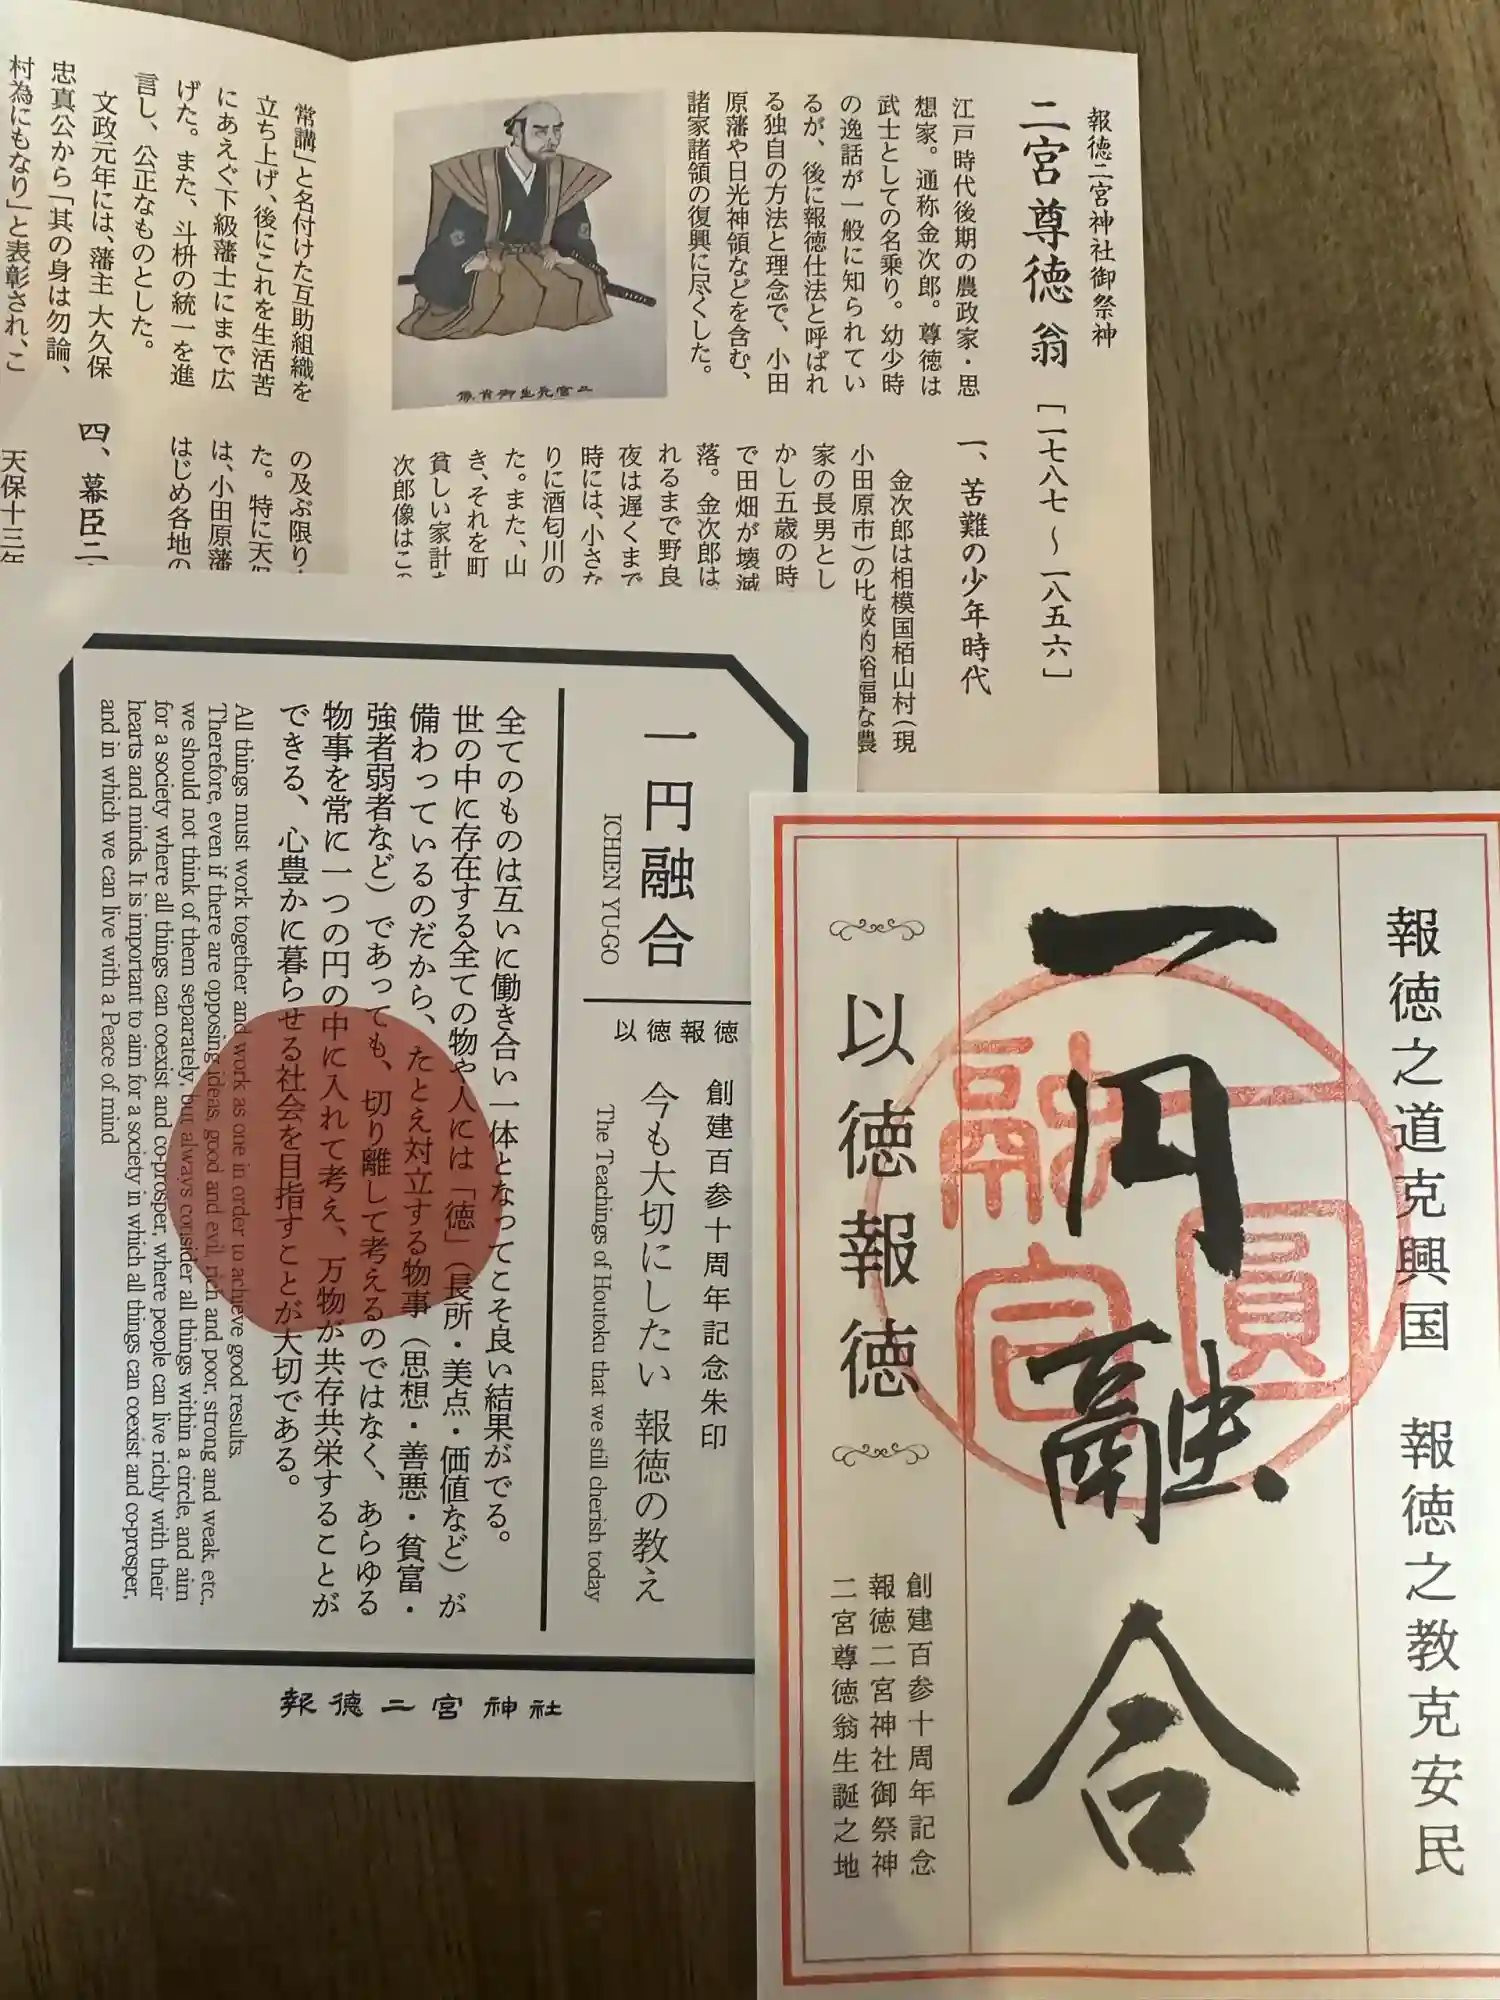 報徳二宮神社御祭神
二宮尊徳 翁 [一七八七〜一八五六]
江戸時代後期の農政家・思
想家。通称金次郎。尊徳は
武士としての名乗り。幼少時
の逸話が一般に知られてい
るが、後に報徳仕法と呼ばれ
る独自の方法と理念で、小田
原藩や日光神領などを含む、
諸家諸領の復興に尽くした。
一、苦難の少年時代
金次郎は相模国栢山村(現
小田原市)の比較的裕福な農
家の長男とし
かし五歳の時
で田畑が壊滅
落。金次郎は
れるまで野良
夜は遅くまで
時には、小さな
りに酒匂川の
た。また、山
き、それを町
貧しい家計を
次郎像はこの
常講」と名付けた互助組織を
立ち上げ、後にこれを生活苦
にあえぐ下級藩士にまで広
げた。また、斗枡の統一を進
言し、公正なものとした。
文政元年には、藩主 大久保
忠真公から「其の身は勿論、
村為にもなり」と表彰され、こ
の及ぶ限り
た。特に天保
は、小田原藩
はじめ各地の
四、幕臣二
天保十三年
一円融合
ICHIEN YU-GO
以徳報徳
創建百参十周年記念朱印
今も大切にしたい 報徳の教え
The Teachings of Houtoku that we still cherish today
全てのものは互いに働き合い一体となってこそ良い結果がでる。
世の中に存在する全ての物や人には「徳」(長所・美点・価値など)が
備わっているのだから、たとえ対立する物事(思想・善悪・貧富・
強者弱者など)であっても、切り離して考えるのではなく、あらゆる
物事を常に一つの円の中に入れて考え、万物が共存共栄することが
できる、心豊かに暮らせる社会を目指すことが大切である。
All things must work together and work as one in order to achieve good results.
Therefore, even if there are opposing ideas, good and evil, rich and poor, strong and weak, etc,
we should not think of them separately, but always consider all things within a circle, and aim
for a society where all things can coexist and co-prosper, where people can live richly with their
hearts and minds. It is important to aim for a society in which all things can coexist and co-prosper,
and in which we can live with a Peace of mind
報徳二宮神社
報徳之道克興国 報徳之教克安民
一円融合
一圓融合
以徳報徳
創建百参十周年記念
報徳二宮神社御祭神
二宮尊徳翁生誕之地